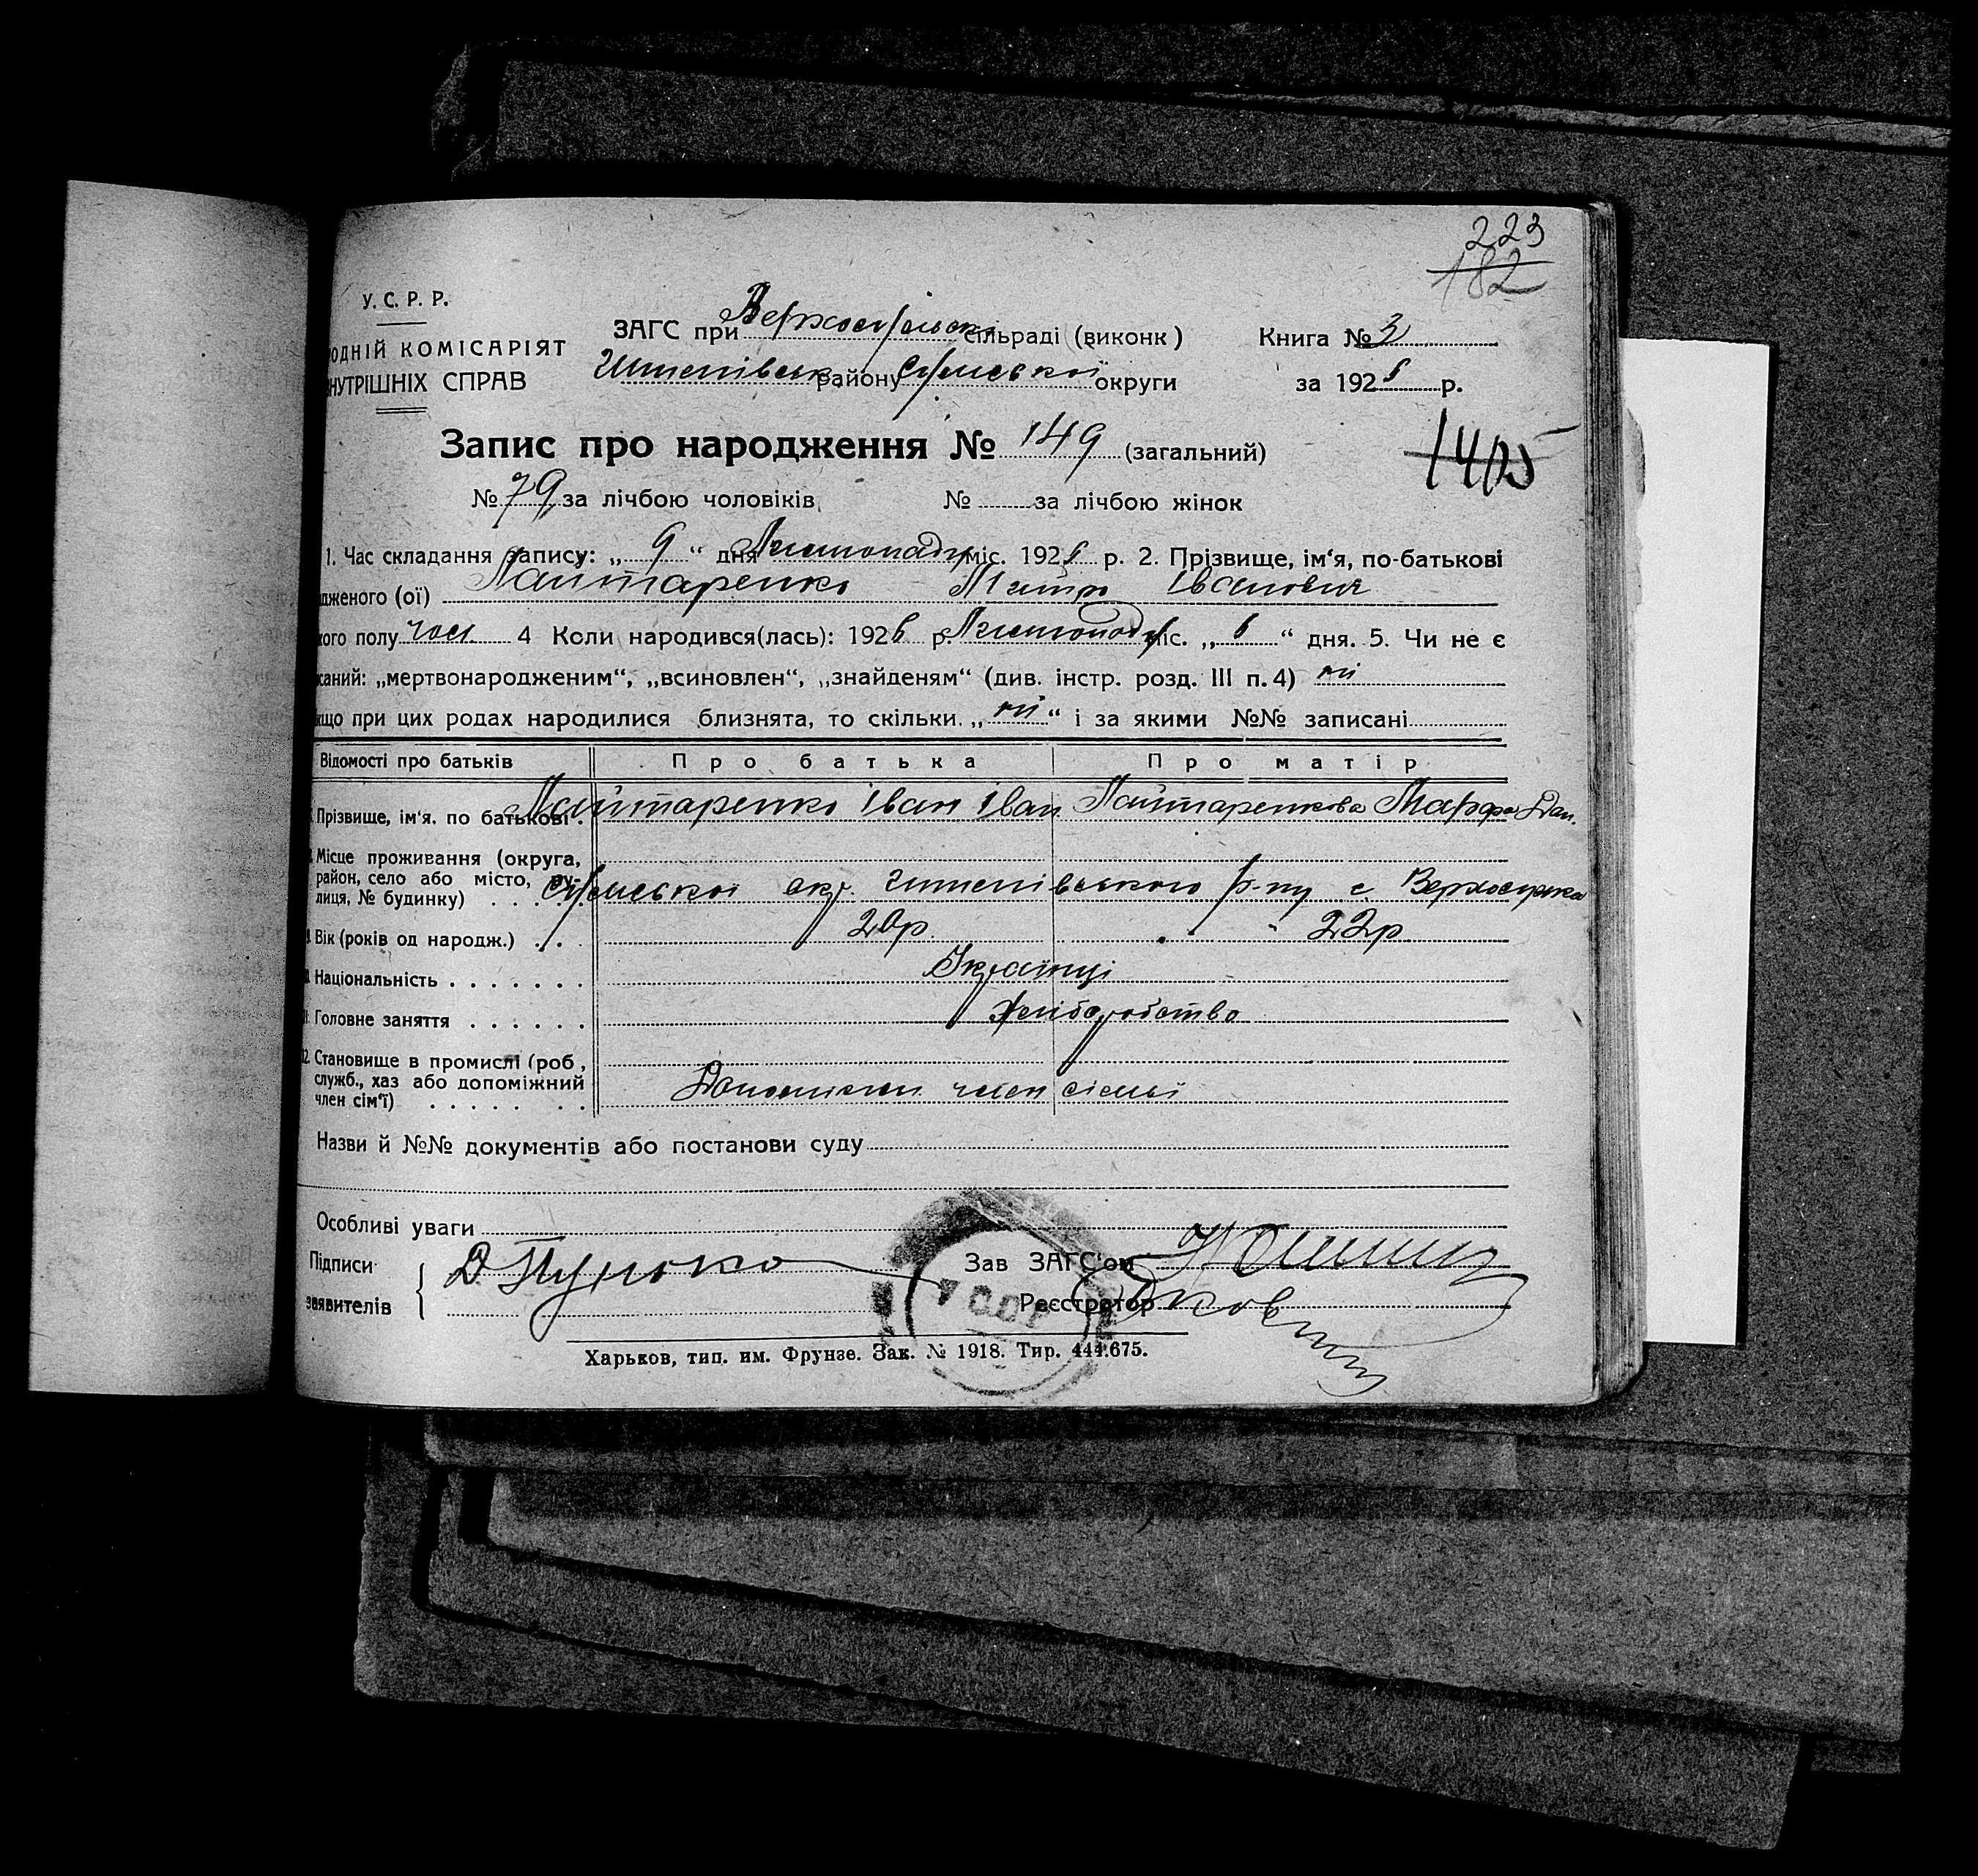 223
182
У. С. Р. Р.
ОДНІЙ КОМІСАРІЯТ
НУТРІШНІХ СПРАВ
ЗАГС при Верхосирівської сільраді (виконк)
Штепівськ району Сумської округи
Книга № 3
за 1926 р.
Запис про народження № 149 (загальний)
1405
№ 79 за лічбою чоловіків № за лічбою жінок
1. Час складання запису: „ 9 “ дня Листопаду міс. 1926 р. 2. Прізвище, ім‘я, по-батькові
дженого (ої) Лаштаренко Митро Іванович
кого полу чол. 4 Коли народився(лась): 1926 р. Листопаду міс. „ 6 “ дня. 5. Чи не є
саний: „мертвонародженим“, „всиновлен“, „знайденям“ (див. інстр. розд. III п. 4) ні
кщо при цих родах народилися близнята, то скільки „ ні “ і за якими №№ записані
Відомості про батьків Про батька Про матір
Прізвище, ім‘я. по батькові Лаштаренко Іван Іван. Лаштаренкова Марфа Дан.
Місце проживання (округа,
район, село або місто, ву-
лиця, № будинку) Сумської окр. Штепівського р-ну с. Верхосирка
Вік (років од народж.) 20р. 22р.
Національність Українці
Головне заняття Хліборобство
12. Становище в промислі (роб,
служб., хаз або допоміжний
член сім‘ї) Допоміжн. член сім'ї
Назви й №№ документів або постанови суду
Особливі уваги
Підписи
заявителів
Зав ЗАГС‘ом
Реєстратор
Харьков, тип. им. Фрунзе. Зак. № 1918. Тир. 444.675.